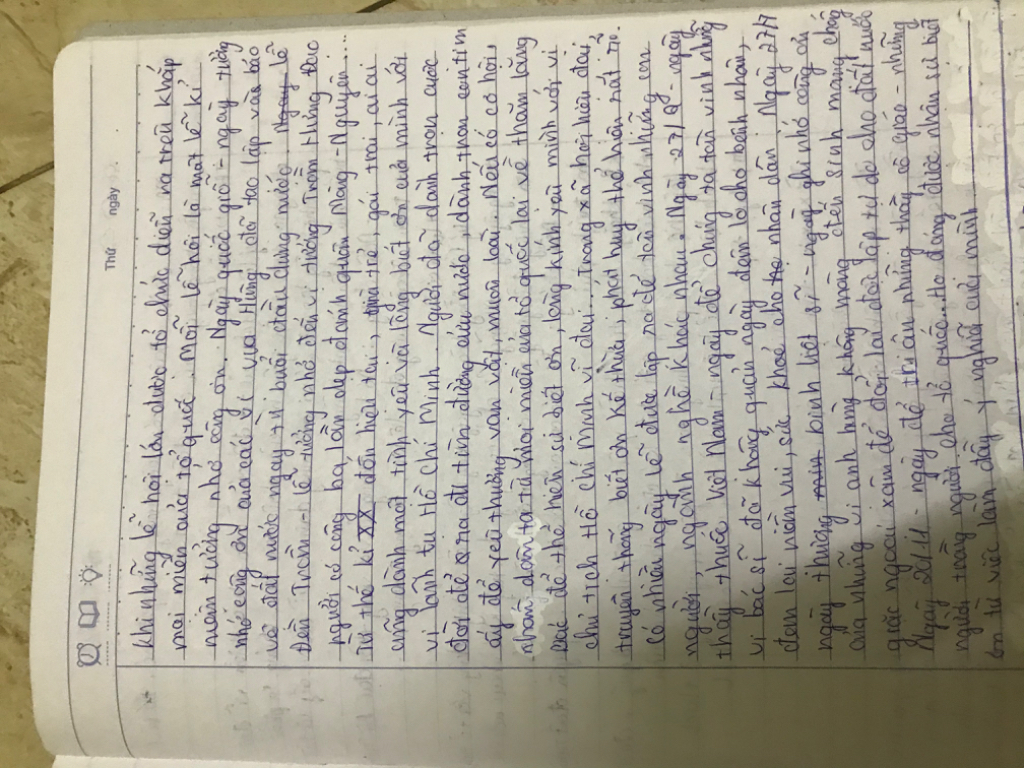 Thứ ngày
Khi những lễ hội lớn được tổ chức diễn ra trên khắp
mọi miền của tổ quốc. Mỗi lễ hội là một lễ kỉ
niệm tưởng nhớ công ơn. Ngày quốc giỗ - ngày tưởng
nhớ công ơn của các vị vua Hùng đã tạo lập và bảo
vệ đất nước ngay từ buổi đầu dựng nước lễ
Đền Trần - lễ tưởng nhớ đến vị tướng Trần Hưng Đạo
người có công ba lần dẹp đánh quân Mông - Nguyên...
Từ thế kỉ XX đến hiện tại, trẻ, gái trai ai ai
cũng dành một tình yêu và lòng biết ơn của mình với
vị lãnh tụ Hồ Chí Minh. Người đã dành trọn cuộc
đời để ra đi tìm đường cứu nước, dành trọn con tim
ấy để yêu thương vạn vật, muôn loài. Nếu có cơ hội,
nhân dân ta từ mọi miền của tổ quốc lại về thăm lăng
Bác để thể hiện sự biết ơn, lòng kính yêu mình với vị
chủ tịch Hồ Chí Minh vĩ đại. Trong xã hội hiện đại,
truyền thống biết ơn kế thừa, phát huy thể hiện rất rõ.
Có nhiều ngày lễ được lập ra để tôn vinh những con
người, ngành nghề khác nhau. Ngày 27/2 - ngày
thầy thuốc Việt Nam - ngày để chúng ta tôn vinh những
vị bác sĩ đã không quản ngày đêm lo cho bệnh nhân,
đem lại niềm vui, sức khoẻ cho nhân dân. Ngày 27/7
ngày thương binh liệt sĩ - ngày ghi nhớ công ơn
của những vị anh hùng không màng đến sinh mạng chống
giặc ngoại xâm để đổi lại độc lập tự do cho đất nước
Ngày 20/11 - ngày để tri ân những thầy cô giáo - những
người trồng người cho tổ quốc... ta đang được nhân sự biết
ơn từ việc làm đầy ý nghĩa của mình